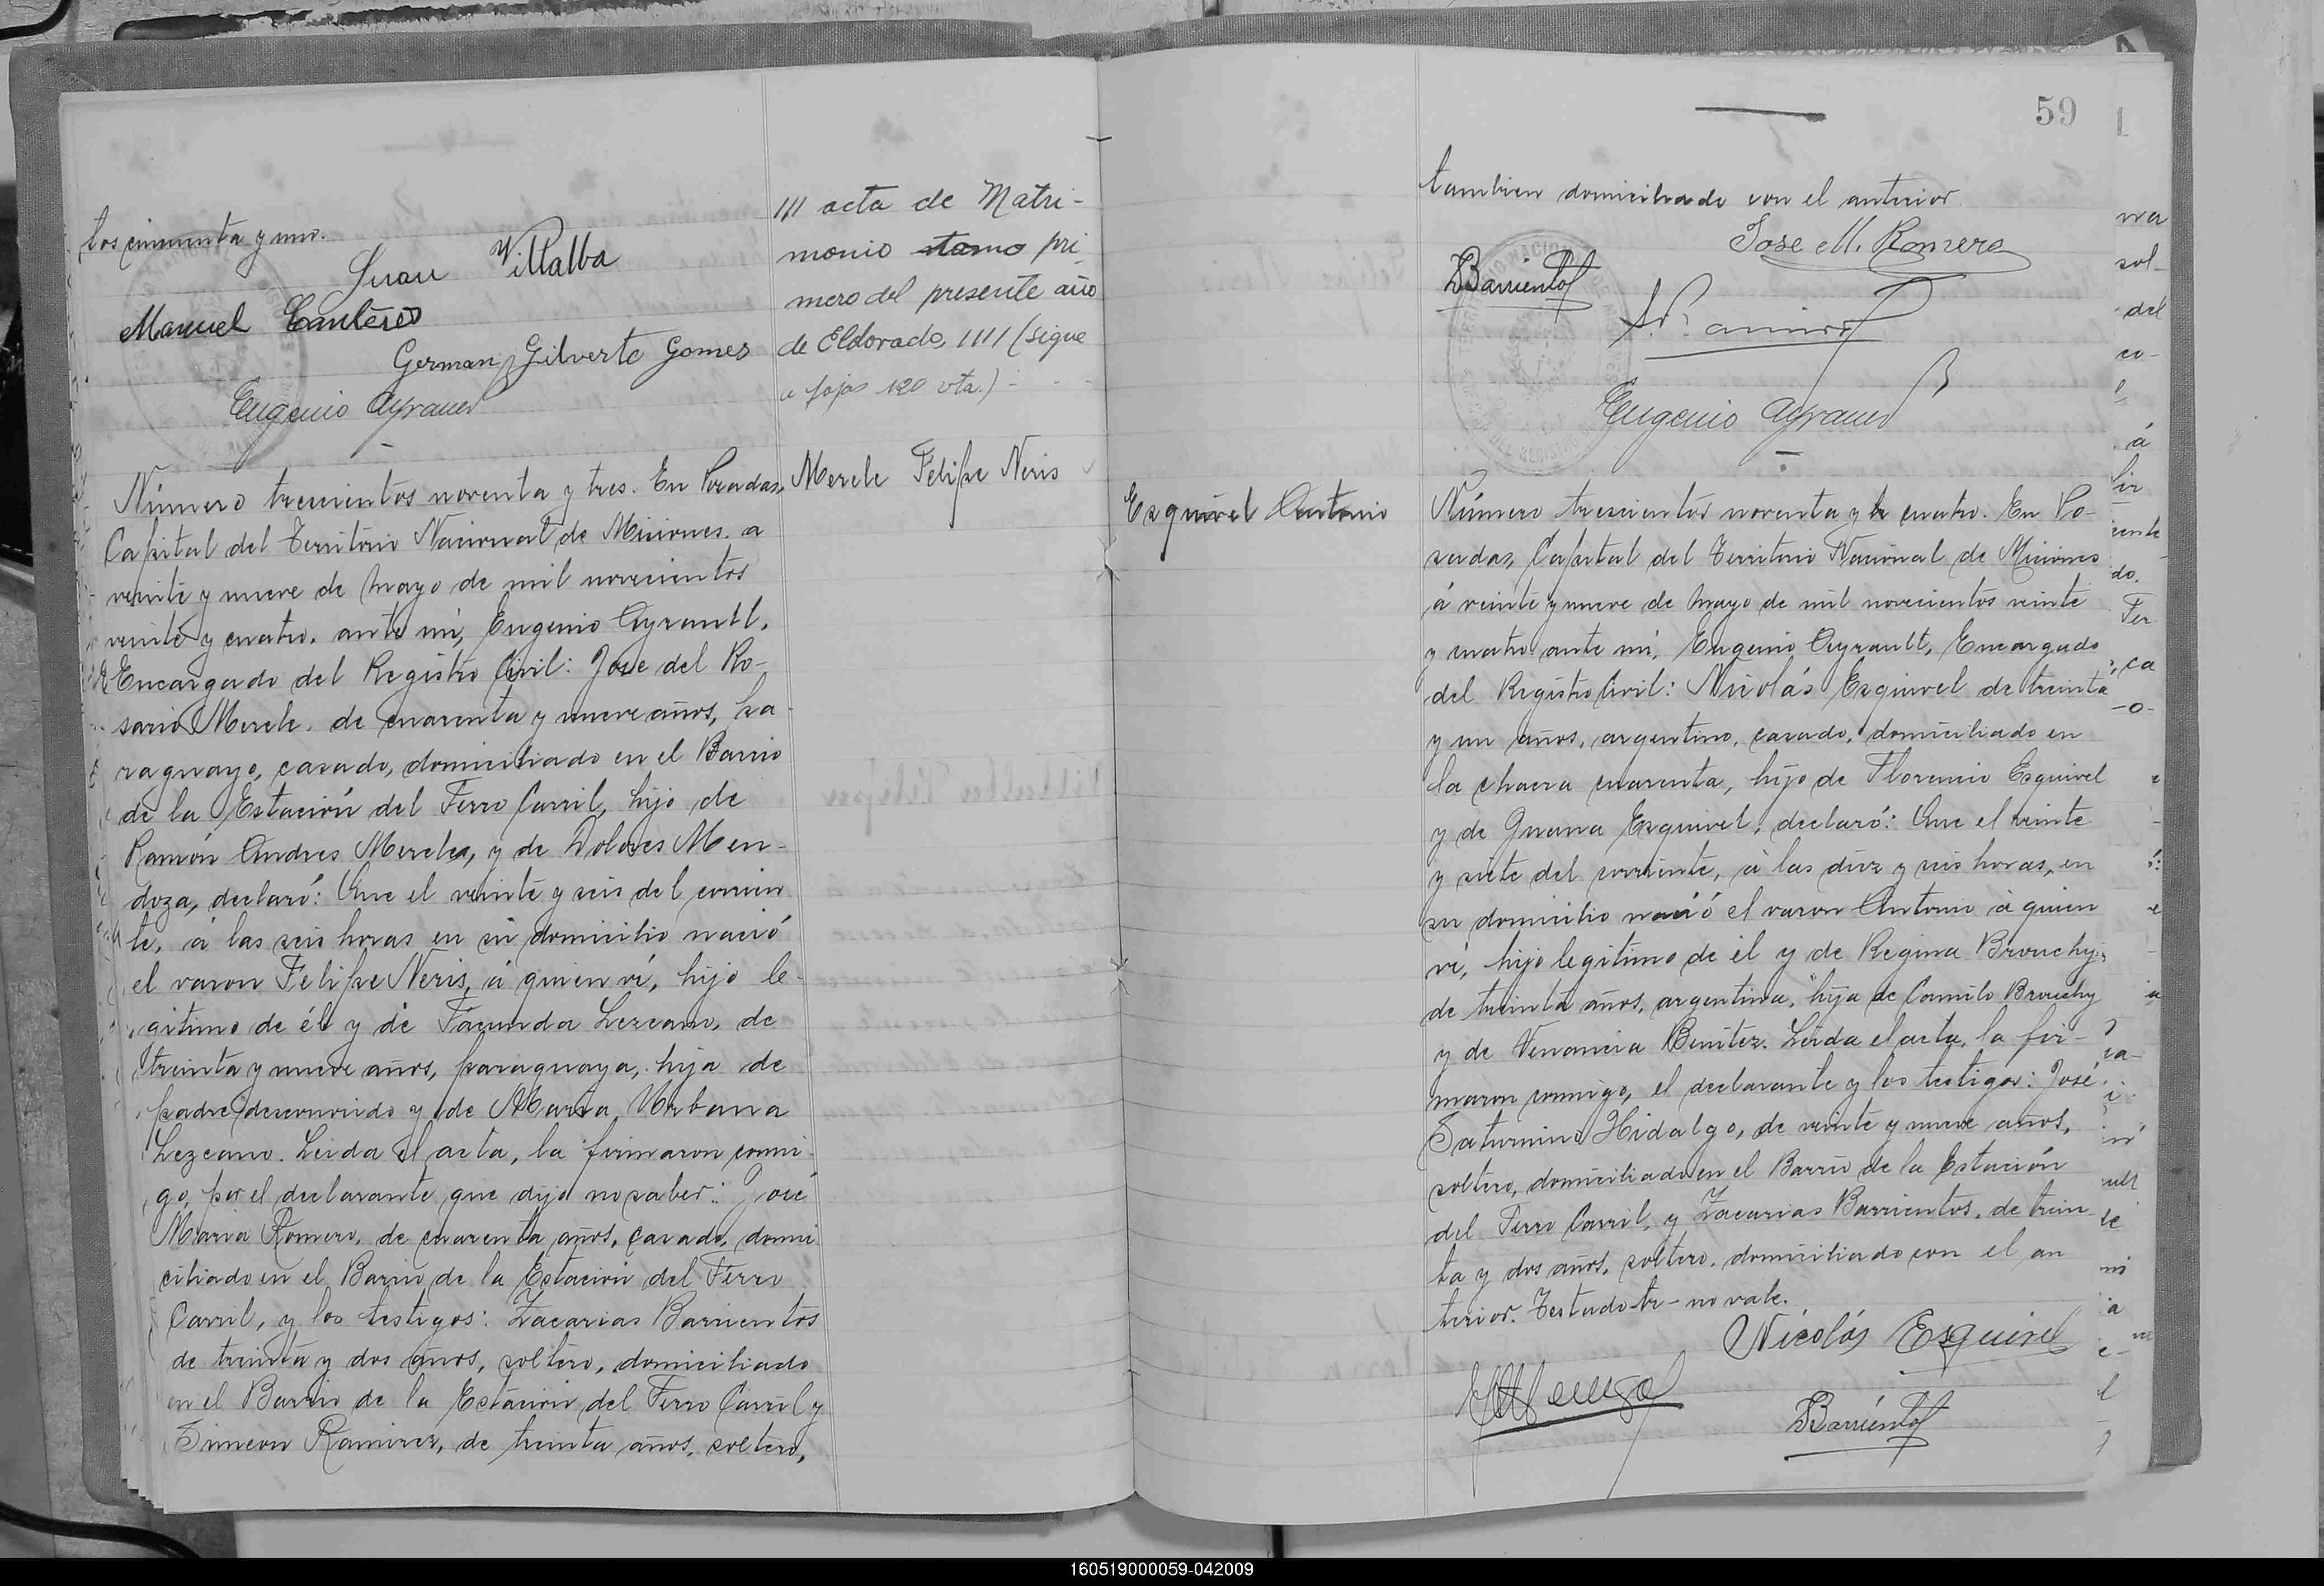 tos cincuenta y uno.
Juan Villalba
Manuel Canteros
German Gilverto Gomes
Eugenio Ayrault
111 acta de Matri-
monio tomo pri
mero del presente año
de Eldorado, 1111 (sigue
a fojas 120 vta.)
Merele Felipe Neris
Número trescientos noventa y tres. En Posadas,
Capital del Territorio Nacional de Misiones. a
veinte y nueve de Mayo de mil novecientos
veinte y cuatro. ante mí, Eugenio Ayrault,
Encargado del Registro Civil: Jose del Ro-
sario Merele. de cuarenta y nueve años, Pa-
raguayo, casado, domiciliado en el Barrio
de la Estación del Ferro Carril, hijo de
Ramón Andres Mereles, y de Dolores Men-
doza, declaró: Que el veinte y seis del corrien
te, á las seis horas en su domicilio nació
el varon Felipe Neris, á quien ví, hijo le-
gitimo de él y de Facunda Lezcano, de
treinta y nueve años, paraguaya, hija de
padre desconocido y de Maria Urbana
Lezcano. Leida el acta, la firmaron conmi-
go, por el declarante que dijo no saber: José
Maria Romero, de cuarenta años, casado, domi-
ciliado en el Barrio de la Estación del Ferro
Carril, y los testigos: Zacarias Barrientos
de treinta y dos años, soltero, domiciliado
en el Barrio de la Estación del Ferro Carril y
Simeon Ramirez, de treinta años, soltero,
59
tambien domiciliado con el anterior
Jose M. Romero
ZBarrientos
S. Ramirez
Eugenio Ayrault
Esquivel Antonio
Número trescientos noventa y tr cuatro. En Po-
sadas, Capital del Territorio Nacional de Misiones
á veinte y nueve de Mayo de mil novecientos veinte
y cuatro ante mí, Eugenio Ayrault, Encargado
del Registro Civil: Nicolás Esquivel de treinta
y un años, argentino, casado, domiciliado en
la chacra cuarenta, hijo de Florencio Esquivel
y de Juana Esquivel, declaró: Que el veinte
y siete del corriente, á las diez y seis horas, en
su domicilio nació el varon Antonio á quien
ví, hijo legitimo de él y de Regina Brouchy,
de treinta años, argentina, hija de Camilo Brouchy
y de Venancia Benitez. Leida el acta, la fir-
maron conmigo, el declarante y los testigos: José
Saturnino Hidalgo, de veinte y nueve años,
soltero, domiciliado en el Barrio de la Estación
del Ferro Carril, y Zacarias Barrientos, de trein-
ta y dos años, soltero, domiciliado con el an
terior. Testado-tr-no vale.
Nicolás Esquivel
ZBarrientos
160519000059-042009